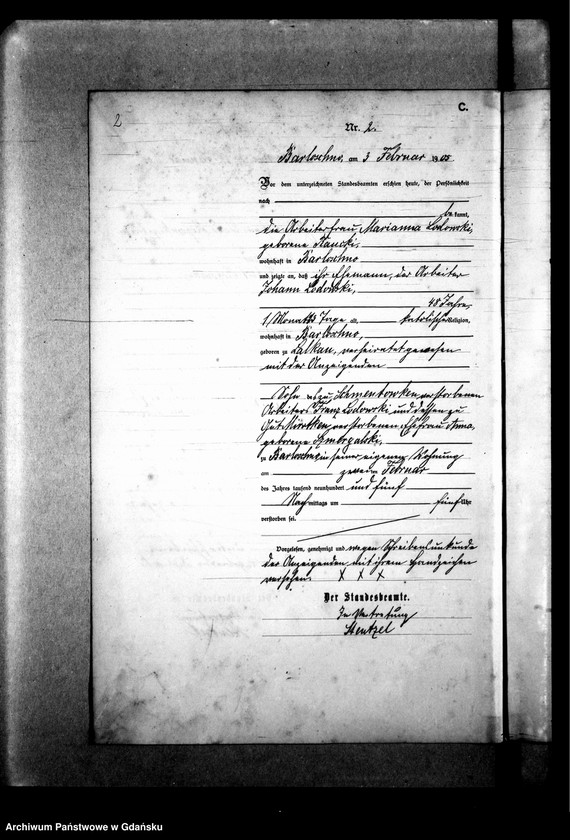 2
C.
Nr. 2.
Barloschno, am 3 Februar 1905
Vor dem unterzeichneten Standesbeamten erschien heute, der Persönlichkeit
nach
be kannt,
die Arbeiterfrau Marianna Lodowski,
geborene
wohnhaft in Barloschno
und zeigte an, daß ihr Ehemann, der Arbeiter
Johann Lodowski,
48 Jahre,
Monate Tage alt, katolischer Religion,
wohnhaft in Barloschno,
geboren zu Lalkau, verheiratet gewesen
mit der Anzeigenden
Sohn des zu verstorbenen
Arbeiters Franz Lodowski und dessen zu
Gut verstorbenen Ehefrau Anna,
geborene
zu Barloschno in seiner eigenen Wohnung
am zweiten Februar
des Jahres tausend neunhundert und fünf
Nach mittags um fünf Uhr
verstorben sei.
Vorgelesen, genehmigt und wegen Schreibensunkunde
der Anzeigenden mit ihrem Handzeichen
versehen. X X X
Der Standesbeamte.
In Vertretung
Hentzel
Archiwum Państwowe w Gdańsku